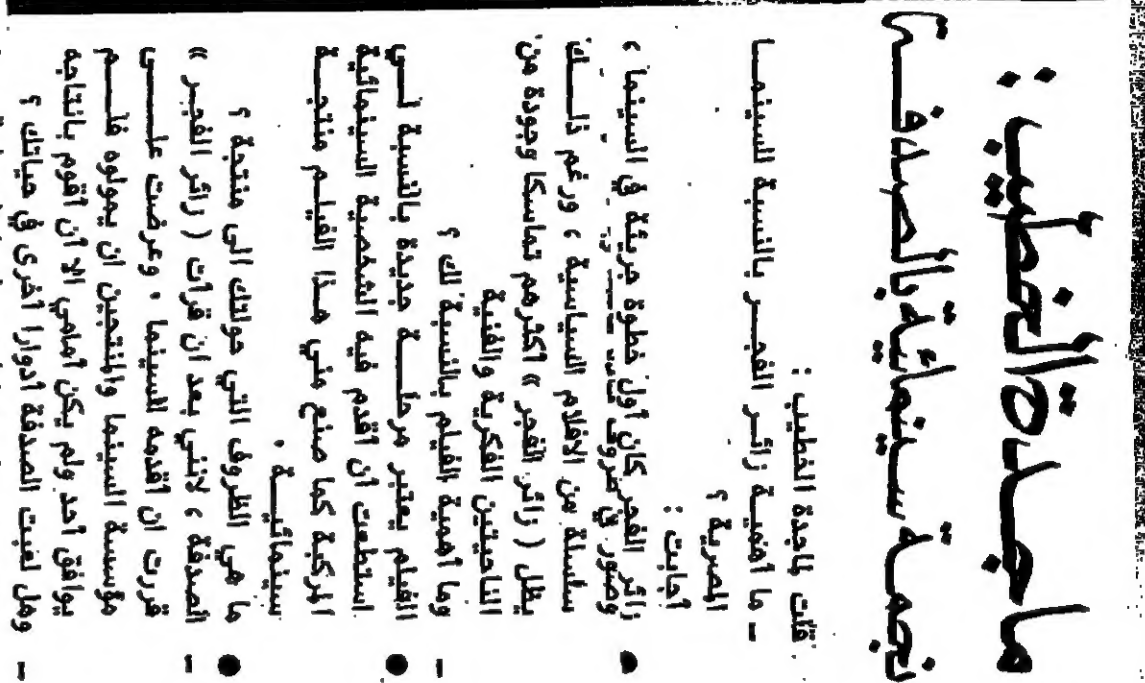 ماجدة الخطيب :
نجمة سينمائية بالصدفة
قلت لماجدة الخطيب :
ـ ما أهمية زائر الفجـر بالنسبة للسينمـا
المصرية ؟
أجابت :
● زائر الفجر كان أول خطوة جريئة في السينما ،
وصور في ظروف
سلسلة من الافلام السياسية ، ورغم ذلـــك
يظل ( زائر الفجر » أكثرهم تماسكا وجودة من
الناحيتين الفكرية والفنية
ـ وما أهمية الفيلم بالنسبة لك ؟
● الفيلم يعتبر مرحلـــة جديدة بالنسبة لــي
استطعت أن أقدم فيه الشخصية السينمائية
المركبة كما صنع مني هـذا الفيلـم منتجـــة
سينمائيـــة .
ـ ما هي الظروف التي حولتك الى منتجة ؟
● الصدفة ، لانني بعد ان قرأت ( زائر الفجـر »
قررت ان أقدمه للسينما ، وعرضت علــــى
مؤسسة السينما والمنتجين ان يمولوه فلــم
يوافق أحد ولم يكن أمامي الا أن أقوم بانتاجه
ـ وهل لعبت الصدفة أدوارا أخرى في حياتك ؟